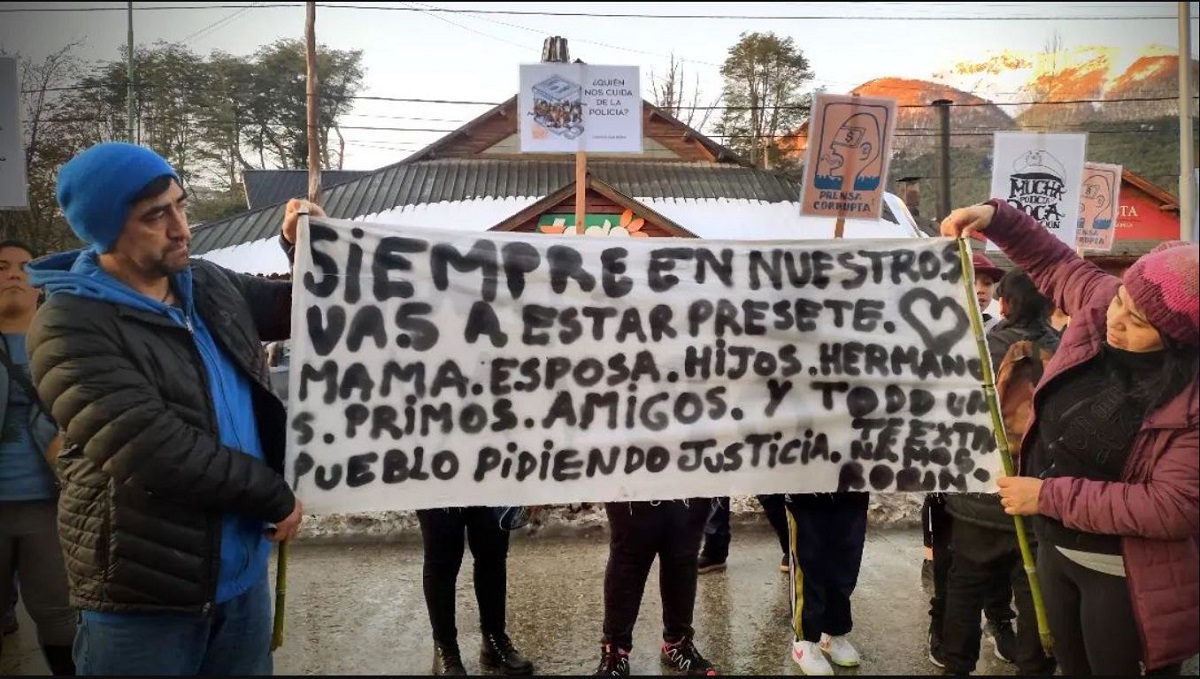 ¿QUIÉN
NOS CUIDA
DE LA
POLICÍA?
PRENSA
CORRUPTA
MUCHA
POLICIA
POCA
SIEMPRE EN NUESTROS
VAS A ESTAR PRESETE.
MAMA. ESPOSA. HIJOS. HERMANO
S. PRIMOS. AMIGOS. Y TODO UN
PUEBLO PIDIENDO JUSTICIA.
TE EXTRA
ÑAMOS
ROBIN.